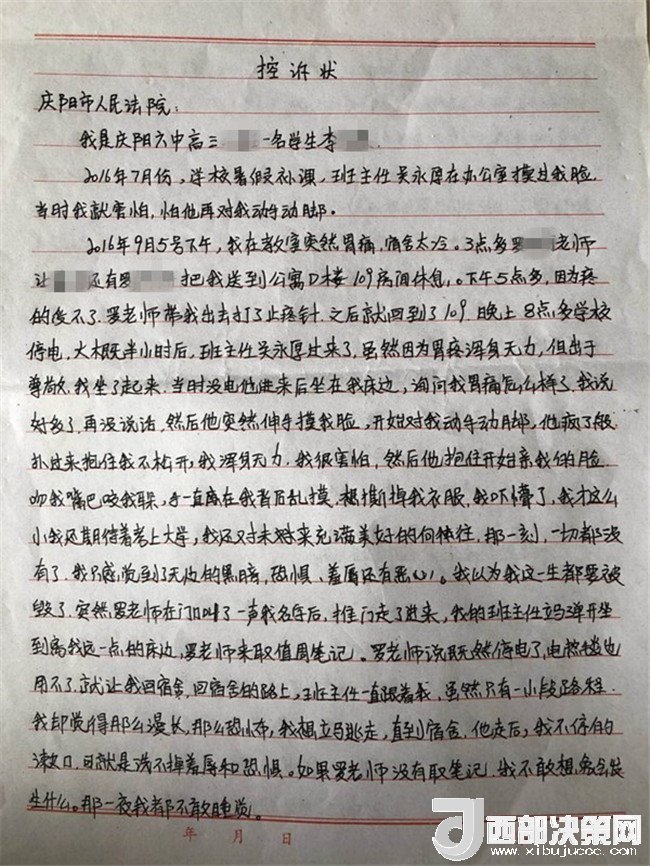 控诉状
庆阳市人民法院:
我是庆阳六中高三 一名学生李 .
2016年7月份,学校暑假补课,班主任吴永厚在办公室摸过我脸.
当时我就害怕,怕他再对我动手动脚。
2016年9月5号下午,我在教室突然胃痛,宿舍太冷。3点多罗 老师
让 还有罗 把我送到公寓D楼109房间休息。下午5点多,因为疼
的受不了.罗老师带我出去打了止疼针.之后就回到了109.晚上8点多学校
停电,大概半小时后,班主任吴永厚过来了,虽然因为胃疼浑身无力,但出于
尊敬.我坐了起来.当时没电他进来后坐在我床边,询问我胃痛怎么样了.我说
好多了.再没说话,然后他突然伸手摸我脸,开始对我动手动脚,他疯了般
扑过来抱住我不松开,我浑身无力.我很害怕,然后他抱住开始亲我的脸.
吻我嘴巴咬我耳朵,手一直在我背后乱摸.想撕掉我衣服,我吓懵了,我才这么
小我还期待着考上大学,我还对未来充满美好的向往,那一刻,一切都没
有了.我只感觉到了无边的黑暗,恐惧、羞辱还有恶心。我以为我这一生都要被
毁了.突然罗老师在门口叫了一声我名字后,推门走了进来,我的班主任立马弹开坐
到离我远一点的床边,罗老师来取值周笔记。罗老师说既然停电了,电热毯也
用不了.就让我回宿舍,回宿舍的路上,班主任一直跟着我,虽然只有一小段路程.
我却觉得那么漫长,那么恐怖,我想立马逃走,直到宿舍,他走后,我不停的
漱口.可就是洗不掉羞辱和恐惧。如果罗老师没有取笔记,我不敢想象会发
生什么。那一夜我都不敢睡觉。
年 月 日
西部决策网
www.xibujuece.com